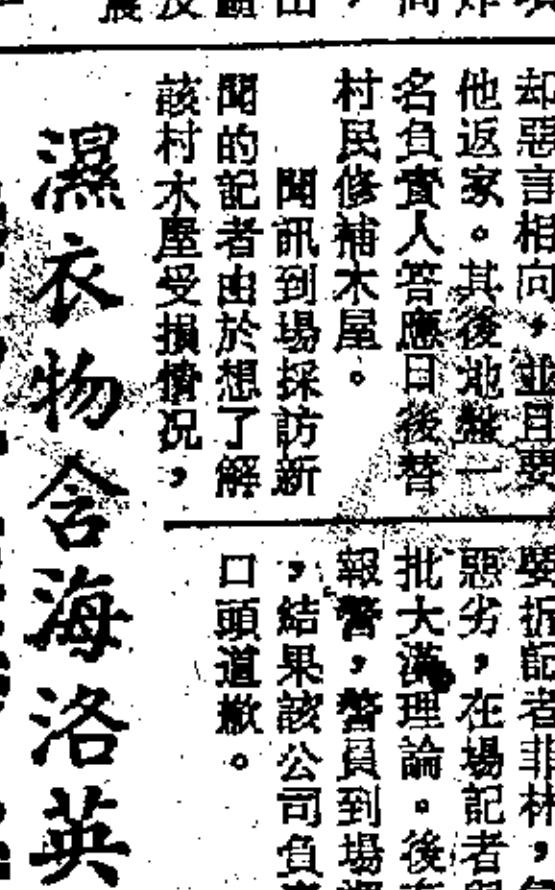 却惡言相向，並且要
他返家。其後地盤一
名負責人答應日後替
村民修補木屋。
聞訊到場採訪新
聞的記者由於想了解
該村木屋受損情況，
要拆記者菲林，
惡劣，在場記者
批大漢理論。後
報警，警員到場
，結果該公司負
口頭道歉。
濕衣物含海洛英